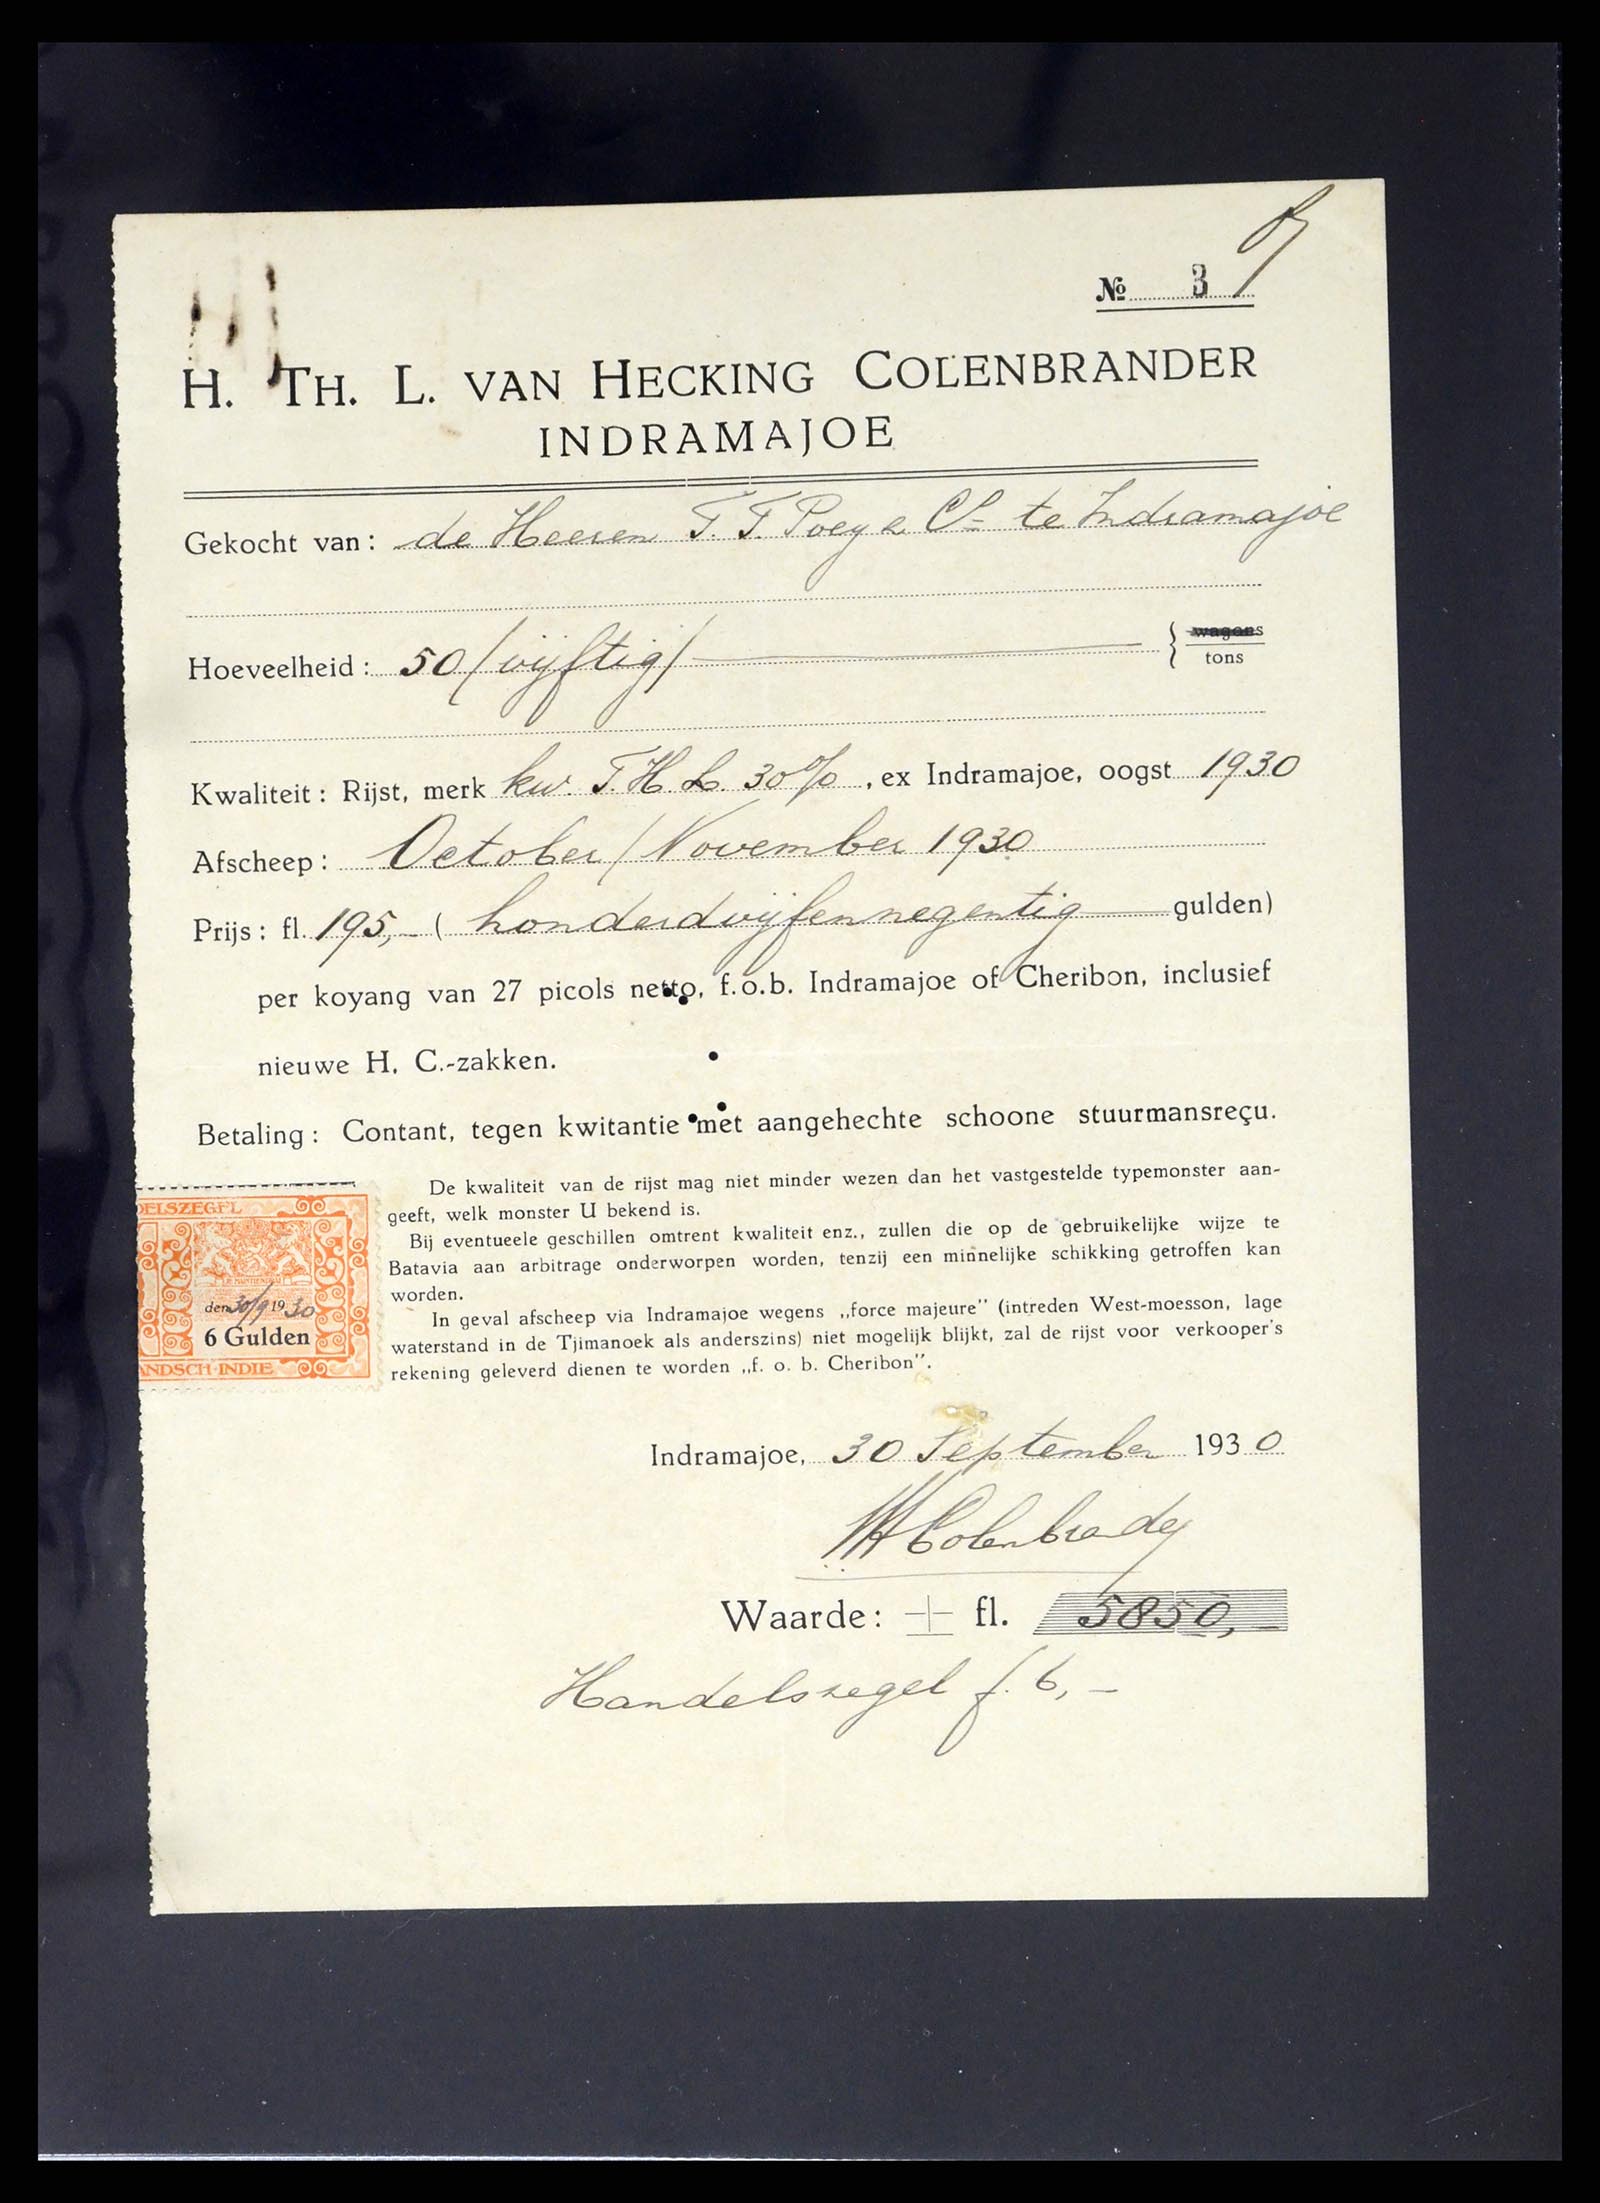 № 3
H. TH. L. VAN HECKING COLENBRANDER
INDRAMAJOE
Gekocht van: de Heeren T. T. Poey & Co te Indramajoe
Hoeveelheid: 50 / vijftig / wagons
tons
Kwaliteit: Rijst, merk kw. T. H. L. 30%, ex Indramajoe, oogst 1930
Afscheep: October / November 1930
Prijs: fl. 195,– ( honderdvijfennegentig gulden)
per koyang van 27 picols netto, f.o.b. Indramajoe of Cheribon, inclusief
nieuwe H. C.-zakken.
Betaling: Contant, tegen kwitantie met aangehechte schoone stuurmansreçu.
De kwaliteit van de rijst mag niet minder wezen dan het vastgestelde typemonster aan-
geeft, welk monster U bekend is.
Bij eventueele geschillen omtrent kwaliteit enz., zullen die op de gebruikelijke wijze te
Batavia aan arbitrage onderworpen worden, tenzij een minnelijke schikking getroffen kan
worden.
In geval afscheep via Indramajoe wegens „force majeure” (intreden West-moesson, lage
waterstand in de Tjimanoek als anderszins) niet mogelijk blijkt, zal de rijst voor verkooper's
rekening geleverd dienen te worden „f. o. b. Cheribon”.
DELSZEGEL
den 30/9 1930
6 Gulden
ANDSCH-INDIE
Indramajoe, 30 September 1930
Colenbrander
Waarde: ± fl. 5850,–
Handelszegel f. 6,–